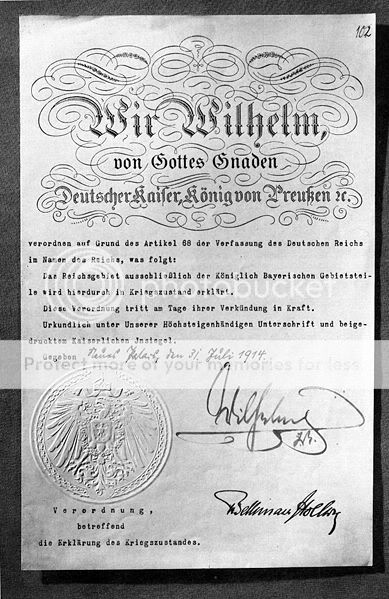 102
Wir Wilhelm,
von Gottes Gnaden
Deutscher Kaiser, König von Preußen ꝛc.
verordnen auf Grund des Artikel 68 der Verfassung des Deutschen Reichs
im Namen des Reichs, was folgt:
Das Reichsgebiet ausschließlich der Königlich Bayerischen Gebietstei-
le wird hierdurch in Kriegszustand erklärt.
Diese Verordnung tritt am Tage ihrer Verkündung in Kraft.
Urkundlich unter Unserer Höchsteigenhändigen Unterschrift und beige-
drucktem Kaiserlichen Insiegel.
Gegeben Neues Palais, den 31. Juli 1914.
Wilhelm
I.R.
v Bethmann Hollweg
Verordnung,
betreffend
die Erklärung des Kriegszustandes.